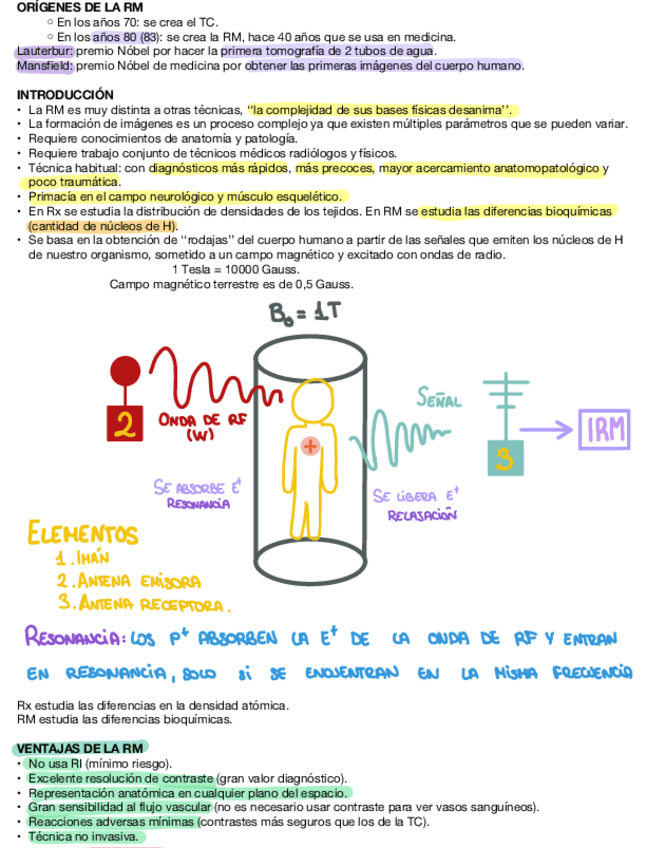 ORÍGENES DE LA RM
○ En los años 70: se crea el TC.
○ En los años 80 (83): se crea la RM, hace 40 años que se usa en medicina.
Lauterbur: premio Nóbel por hacer la primera tomografía de 2 tubos de agua.
Mansfield: premio Nóbel de medicina por obtener las primeras imágenes del cuerpo humano.
INTRODUCCIÓN
• La RM es muy distinta a otras técnicas, ‘‘la complejidad de sus bases físicas desanima’’.
• La formación de imágenes es un proceso complejo ya que existen múltiples parámetros que se pueden variar.
• Requiere conocimientos de anatomía y patología.
• Requiere trabajo conjunto de técnicos médicos radiólogos y físicos.
• Técnica habitual: con diagnósticos más rápidos, más precoces, mayor acercamiento anatomopatológico y
poco traumática.
• Primacía en el campo neurológico y músculo esquelético.
• En Rx se estudia la distribución de densidades de los tejidos. En RM se estudia las diferencias bioquímicas
(cantidad de núcleos de H).
• Se basa en la obtención de ‘‘rodajas’’ del cuerpo humano a partir de las señales que emiten los núcleos de H
de nuestro organismo, sometido a un campo magnético y excitado con ondas de radio.
1 Tesla = 10000 Gauss.
Campo magnético terrestre es de 0,5 Gauss.
B₀ = 1T
2
ONDA DE RF
(W)
+
SEÑAL
3
IRM
SE ABSORBE E⁺
RESONANCIA
SE LIBERA E⁺
RELAJACIÓN
ELEMENTOS
1. IMÁN
2. ANTENA EMISORA
3. ANTENA RECEPTORA.
RESONANCIA: LOS P⁺ ABSORBEN LA E⁺ DE LA ONDA DE RF Y ENTRAN
EN RESONANCIA, SOLO SI SE ENCUENTRAN EN LA MISMA FRECUENCIA
Rx estudia las diferencias en la densidad atómica.
RM estudia las diferencias bioquímicas.
VENTAJAS DE LA RM
• No usa RI (mínimo riesgo).
• Excelente resolución de contraste (gran valor diagnóstico).
• Representación anatómica en cualquier plano del espacio.
• Gran sensibilidad al flujo vascular (no es necesario usar contraste para ver vasos sanguíneos).
• Reacciones adversas mínimas (contrastes más seguros que los de la TC).
• Técnica no invasiva.